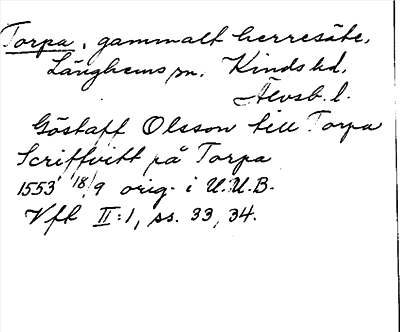 Torpa, gammalt herresäte,
Länghems sn. Kinds hd.
Älvsb. l.
Göstaff Olsson till Torpa
Scriffvitt på Torpa
1553 18/9 orig. i U.U.B.
Vfk II:1, ss. 33, 34.